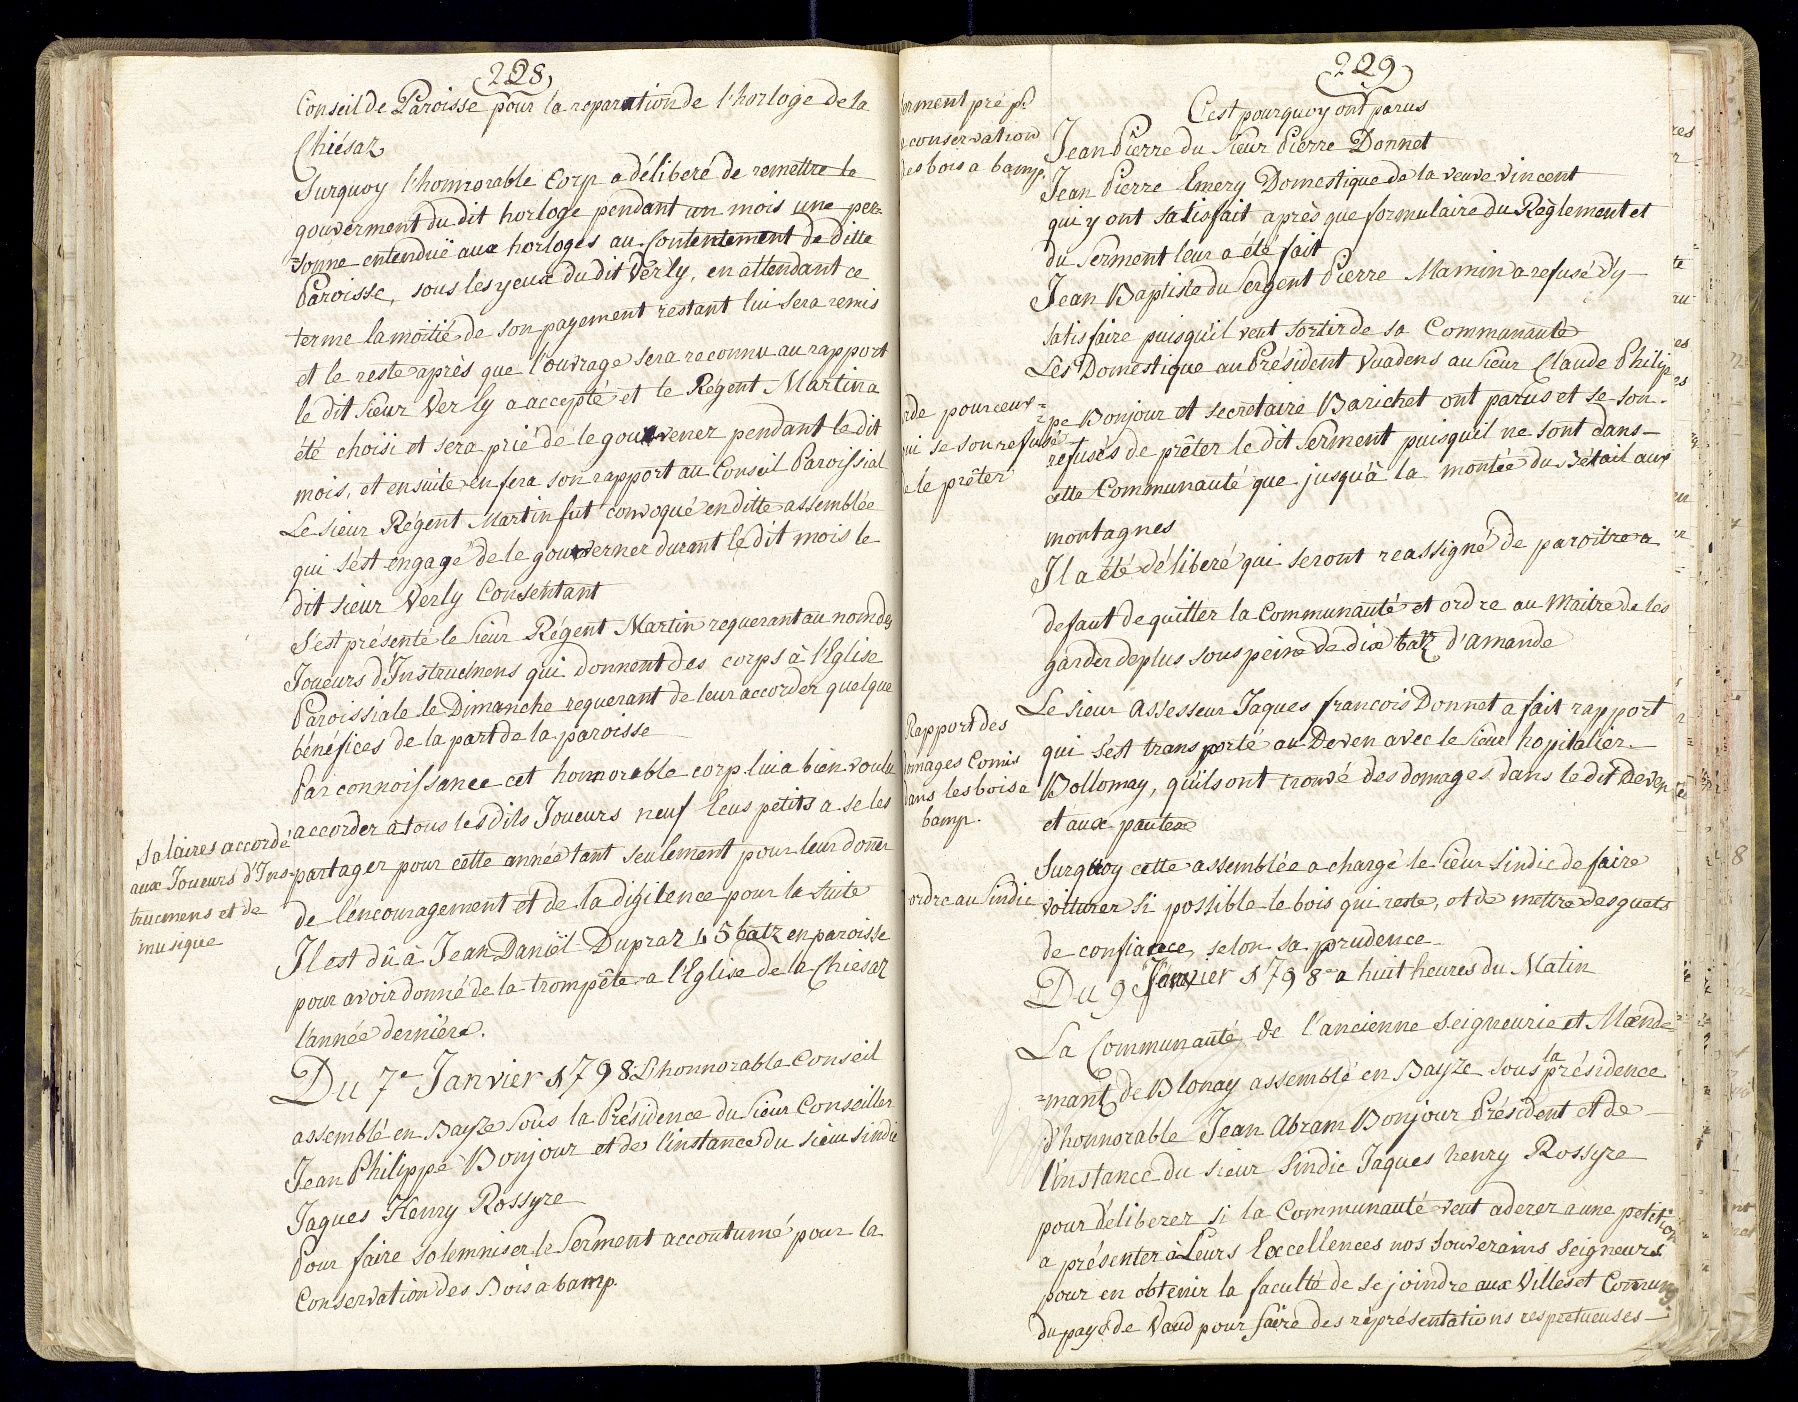 228
Conseil de Paroisse pour la reparation de l'horloge de la
Chiésaz
Surquoy l'honnorable Corp a déliberé de remettre le
gouverment du dit horloge pendant un mois une per-
=sonne entenduë aux horloges au Contentement de ditte
Paroisse, sous les yeux du dit Verly, en attendant ce
terme la moitié de son payement restant lui sera remis
et le reste après que l'ouvrage sera reconnu au rapport
le dit sieur Verly a accepté et le Régent Martin a
été choisi et sera prié de le gouvernez pendant le dit
mois, et ensuite en fera son rapport au Conseil Paroissial
Le sieur Régent Martin fut convoqué en ditte assemblée
qui s'est engagé de le gouverner durant le dit mois le
dit sieur Verly Consentant
S'est présenté le sieur Régent Martin requerant au nom des
Joueurs d'Instrucmens qui donnent des corps à l'Eglise
Paroissiale le Dimanche requerant de leur accorder quelque
bénéfices de la part de la paroisse
Par connoissance cet honnorable corp lui a bien voulu
accorder a tous les dits Joueurs neuf Ecus petits a se les
partager pour cette année tant seulement pour leur doner
de l'encouragement et de la digilence pour la suite
Salaires accordé
aux Joueurs d'Ins-
trucmens et de
musique
Il est dû à Jean Daniël Dupraz 45 batz en paroisse
pour avoir donné de la trompête a l'Eglise de la Chiésaz
l'année dernière.
Du 7e Janvier 1798 L'honnorable Conseil
assemblé en Bayse sous la Présidence du sieur Conseiller
Jean Philippe Bonjour et de l'instance du sieur sindic
Jaques Henry Rossyre
Pour faire solemniser le Serment accoutumé pour la
Conservation des Bois a bamp.
229
C'est pourquoy ont parus
erment pré pr
conservation
des bois a bamp.
Jean Pierre du sieur Pierre Donnet
Jean Pierre Emery Domestique de la veuve Vincent
qui y ont satisfait après que formulaire du Règlement et
du Serment leur a été fait
Jean Baptiste du sergent Pierre Mamin a refusé d'y
satisfaire puisqu'il veut sortir de sa Communauté
Les Domestique au Président Vuadens au sieur Claude Philip
=pe Bonjour et secretaire Barichet ont parus et se son
refusés de prêter le dit Serment puisqu'il ne sont dans
cette Communauté que jusqu'à la montée du Bétail aux
montagnes
rde pour ceux=
ui se son refusé
e le prêter
Il a été déliberé qui seront reassigné de paroitre a
defaut de quitter la Communauté et ordre au Maitre de les
garder deplus sous peine de dix batz d'amande
Le sieur Assesseur Jaques francois Donnet a fait rapport
qui s'est transporté au Deven avec le sieur hopitalier
Bollomay, qu'ils ont trouvé des domages dans le dit Deven
et aux pautex
Rapport des
omages Comis
dans les bois a
bamp.
Surquoy cette assemblée a chargé le sieur sindic de faire
voiturer si possible le bois qui reste, et de mettre des guets
de confiance, selon sa prudence
ordre au Sindic
Du 9 Janvier 1798 a huit heures du Matin
La Communauté de l'ancienne Seigneurie et Mande=
=mant de Blonay assemblé en Bayse sous la présidence
d'honnorable Jean Abram Bonjour Président et de
l'instance du sieur Sindic Jaques henry Rossyre
pour déliberer si la Communauté veut aderer a une petition
a présenter à Leurs Excellences nos souverains seigneurs
pour en obtenir la faculté de se joindre aux Villes et Comuns
du pays de Vaud pour faire des réprésentations respectueuses